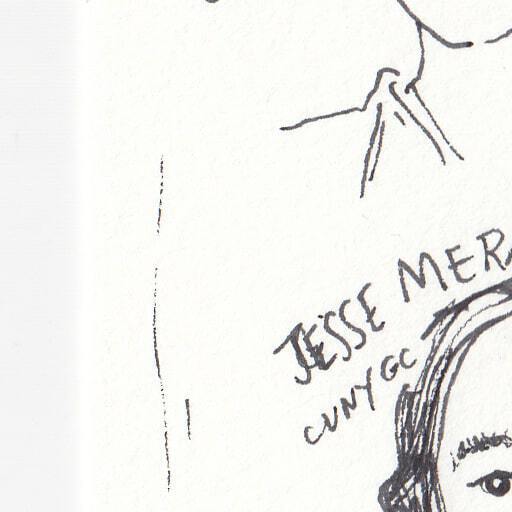 JESSE MER
CUNY GC